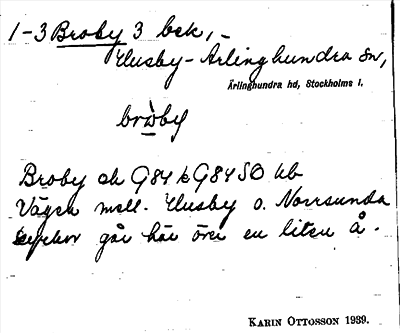 1-3 Broby 3 bek,-
Husby-Ärlinghundra sn,
Ärlinghundra hd, Stockholms l.
bròby
Broby ek G84 k G84SO kb
Vägen mell. Husby o. Norrsunda
kyrkor går här över en liten å.
KARIN OTTOSSON 1939.